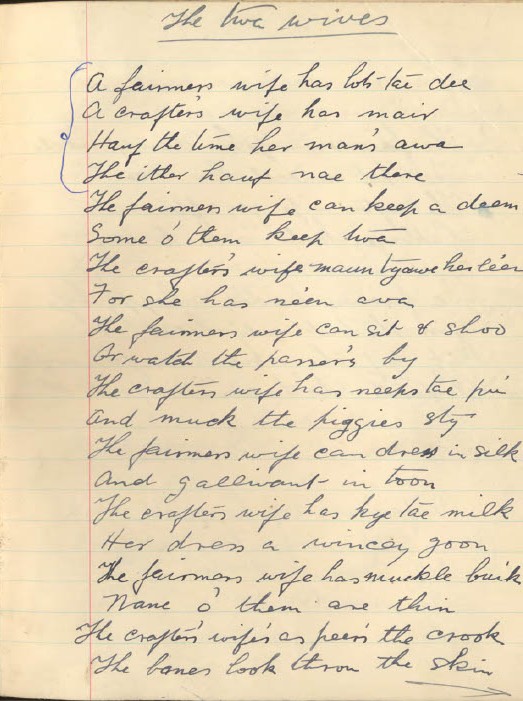 The twa wives
A fairmers wife has lots tae dee
A crafter's wife has mair
Hauf the time her man's awa
The ither hauf nae there
The fairmers wife can keep a deem
Some o' them keep twa
The crafter's wife maun tyauve her leen
For she has neen ava
The fairmers wife can sit & shoo
Or watch the passer's by
The crafters wife has neeps tae pu
And muck the piggies sty
The fairmers wife can dress in silk
And gallivant in toon
The crafters wife has kye tae milk
Her dress a wincey goon
The fairmers wife has muckle buik
Nane o' them are thin
The crafter's wife's as peer's the crook
The banes look throu the skin